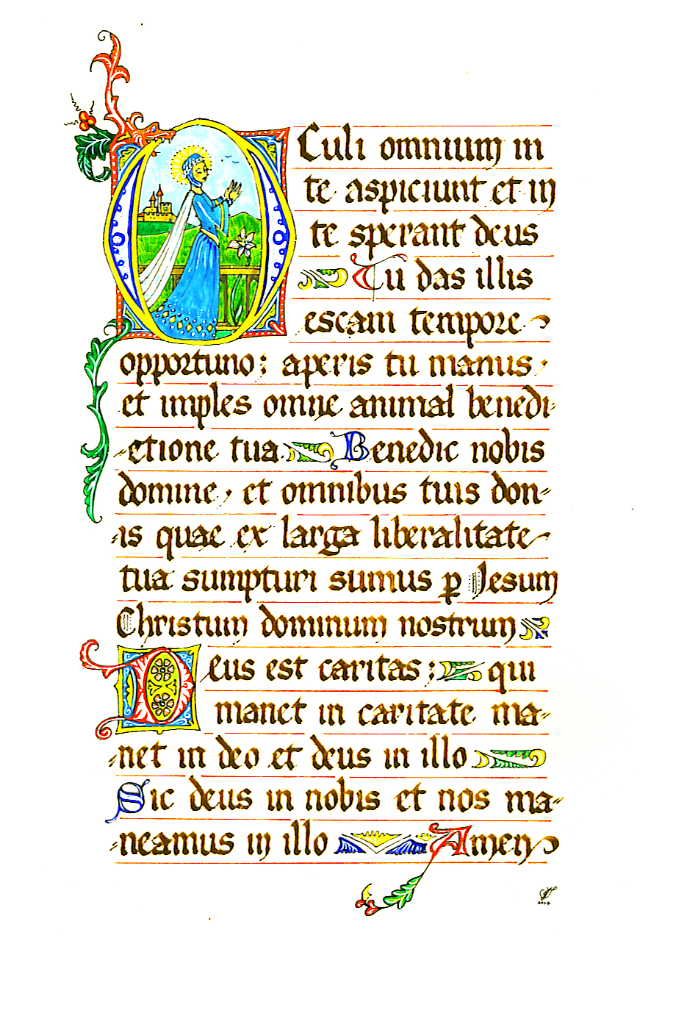 Oculi omnium in
te aspiciunt et in
te sperant deus
Tu das illis
escam tempore
opportuno: aperis tu manus,
et imples omne animal benedi-
-ctione tua Benedic nobis
domine, et omnibus tuis don-
-is quae ex larga liberalitate
tua sumpturi sumus p Jesum
Christum dominum nostrum
Deus est caritas; qui
manet in caritate ma-
-net in deo et deus in illo
Sic deus in nobis et nos ma-
-neamus in illo Amen